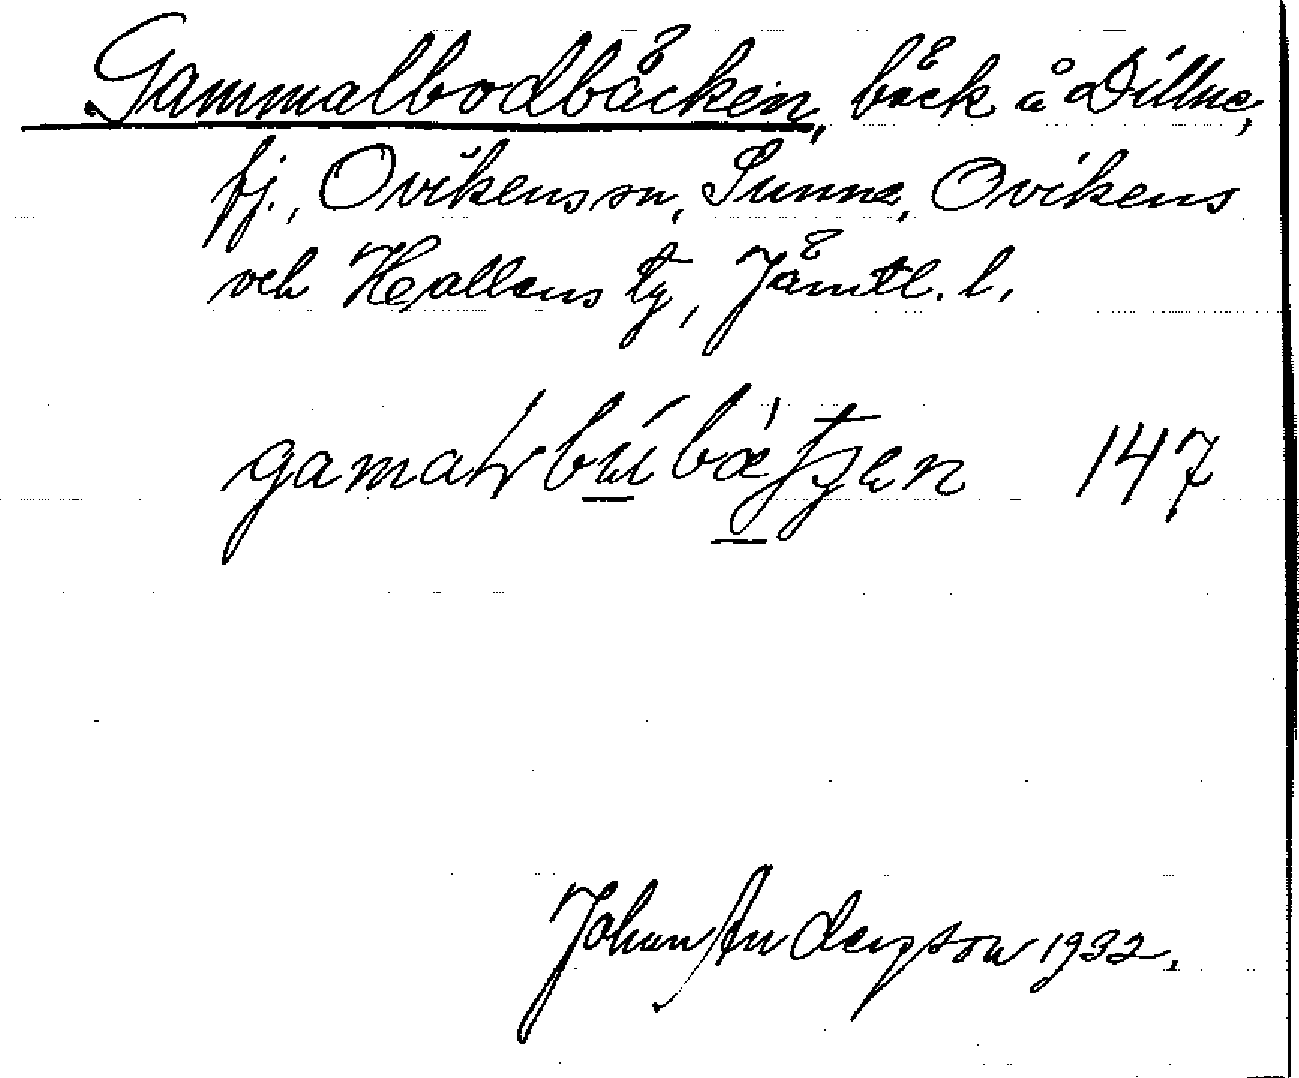 Gammalbodbäcken, bäck å Dillne,
fj., Ovikens sn, Sunne, Ovikens
och Hallens tg, Jämtl. l.
147
Johan Anderson 1932.